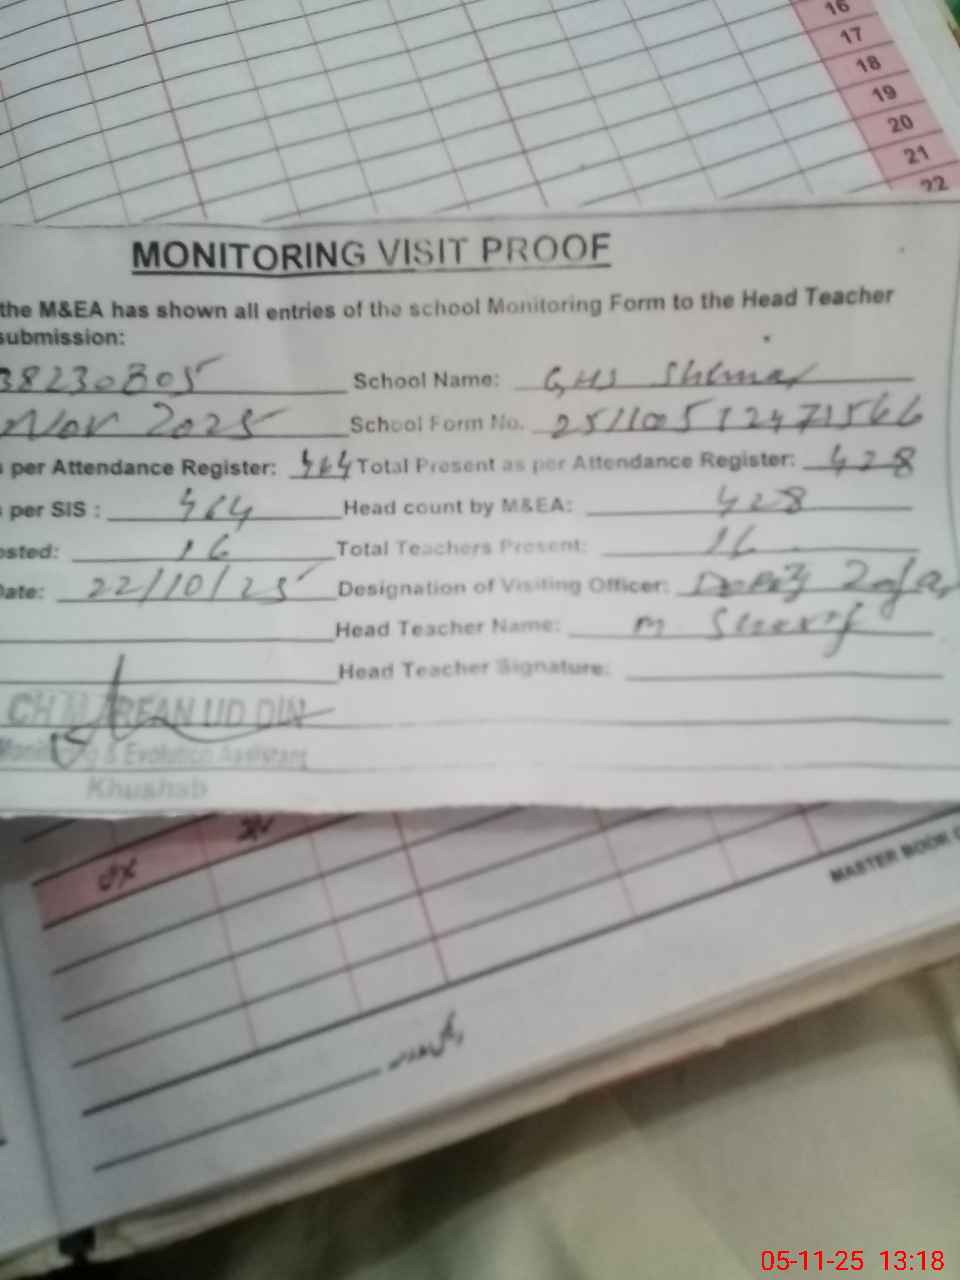 16
17
18
19
20
21
22
MONITORING VISIT PROOF
the M&EA has shown all entries of the school Monitoring Form to the Head Teacher
submission:
38230305 School Name: GHS
Nov 2025 School Form No. 25110051247 1566
per Attendance Register: 464 Total Present as per Attendance Register: 428
per SIS : 464 Head count by M&EA: 428
osted: 16 Total Teachers Present: 16
Date: 22/10/25 Designation of Visiting Officer:
Head Teacher Name: M
Head Teacher Signature:
UD DIN
& Evolution Assistant
Khushab
MASTER BOOK
05-11-25 13:18